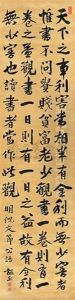 天下之事利害常相半有全利而無少害者
惟書不問貴賤貧富老少觀書一卷則有一
卷之益觀書一日則有一日之益故有全利
無少害也讀書者當作此觀 明倪文節公語